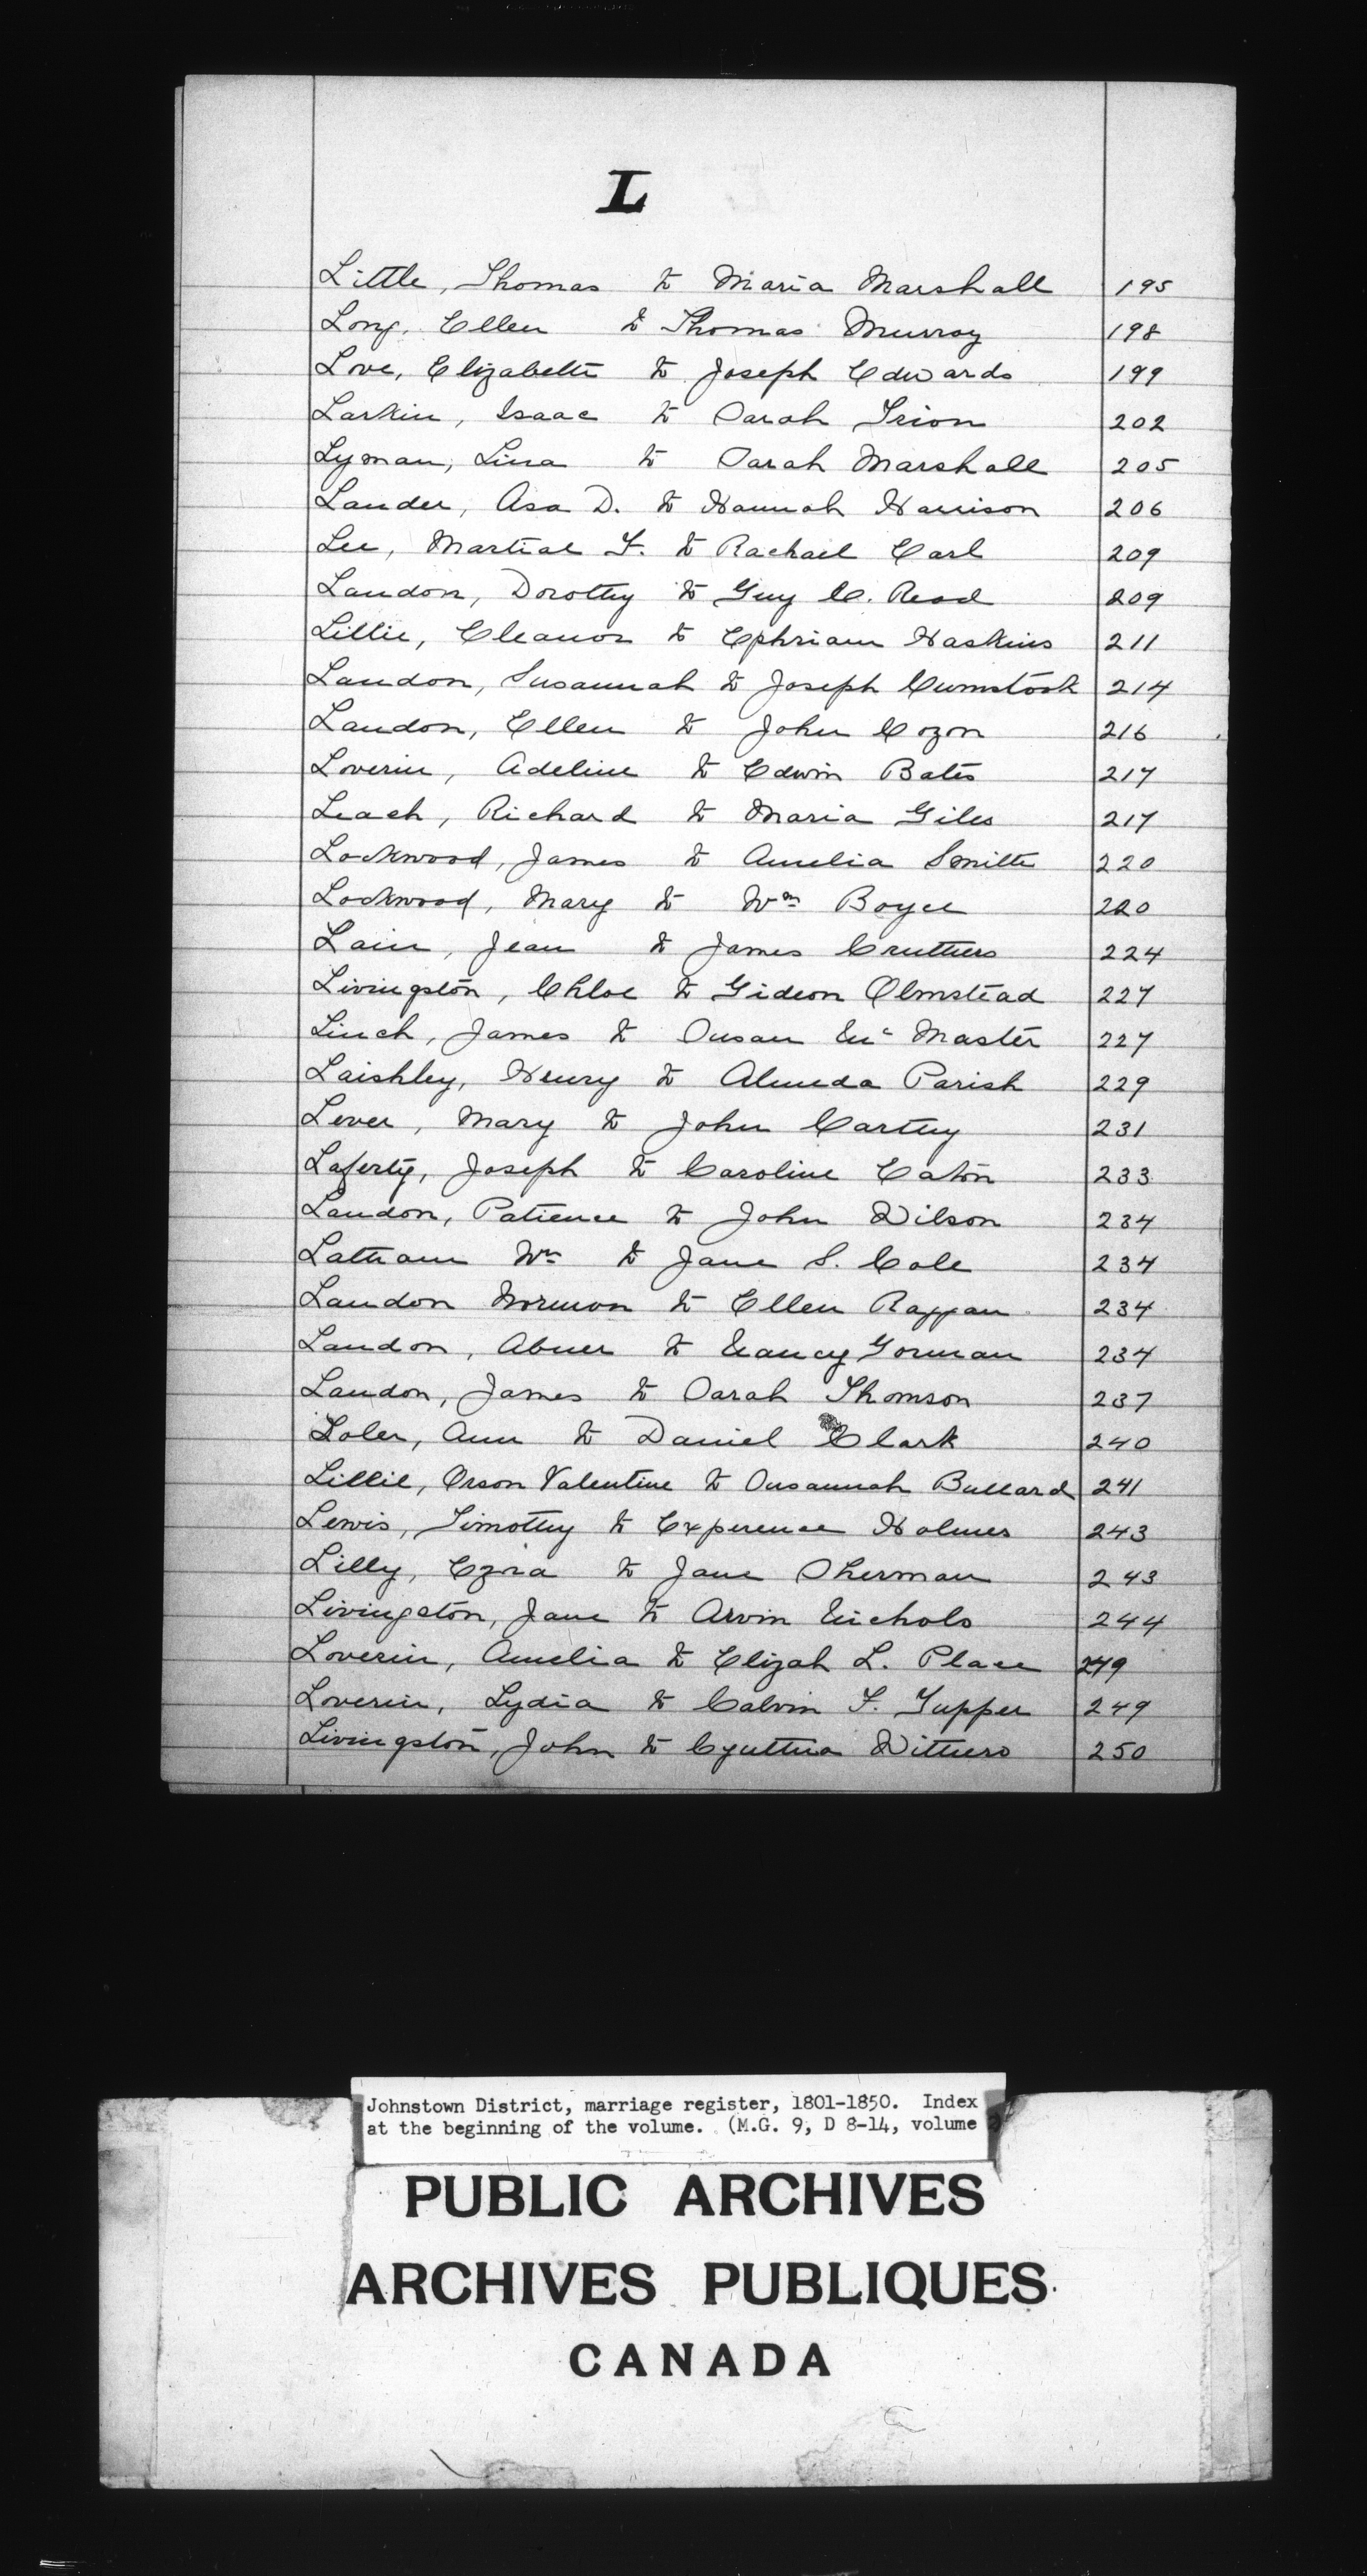 L
Little, Thomas to Maria Marshall 195
Long, Ellen to Thomas Murray 198
Love, Elizabeth to Joseph Edwards 199
Larkin, Isaac to Sarah Irion 202
Lyman, Lina to Sarah Marshall 205
Lander, Asa D. to Hannah Harrison 206
Lee, Martial F. to Rachael Carl 209
Landon, Dorothy to Guy C. Read 209
Lillie, Eleanor to Ephriam Haskins 211
Landon, Susannah to Joseph Cumstock 214
Landon, Ellen to John Cozon 216
Loverin, Adeline to Edwin Bates 217
Leach, Richard to Maria Giles 217
Lockwood, James to Amelia Smith 220
Lockwood, Mary to Wm Boyce 220
Lain, Jean to James Cruthers 224
Livingston, Chloe to Gideon Olmstead 227
Linch, James to Susan Mc Master 227
Laishley, Henry to Almeda Parish 229
Lever, Mary to John Carthy 231
Laferty, Joseph to Caroline Eaton 233
Landon, Patience to John Wilson 234
Latham Wm to Jane S. Cole 234
Landon Norman to Ellen Raggan 234
Landon, Abner to Nancy Gorman 234
Landon, James to Sarah Thomson 237
Loler, Ann to Daniel Clark 240
Lillie, Orson Valentine to Susannah Bullard 241
Lewis, Timothy to Experence Holmes 243
Lilly, Ezra to Jane Sherman 243
Livingston, Jane to Arvin Nichols 244
Loverin, Amelia to Elizah L. Place 249
Loverin, Lydia to Calvin F. Tupper 249
Livingston, John to Cynthia Withers 250
Johnstown District, marriage register, 1801-1850. Index
at the beginning of the volume. (M.G. 9, D 8-14, volume
PUBLIC ARCHIVES
ARCHIVES PUBLIQUES
CANADA